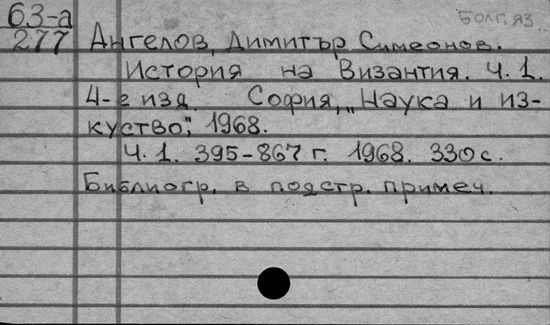 63-а
277
Болг. яз
Ангелов, Димитър Симеонов.
История на Византия. Ч. 1.
4-е изд. София, „Наука и из-
куство", 1968.
Ч. 1. 395-867 г. 1968. 330 с.
Библиогр. в подстр. примеч.